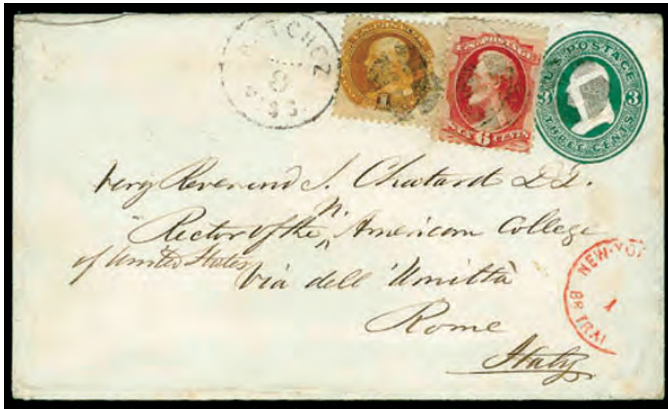 NATCHEZ
8
MISS.
U.S. POSTAGE
SIX 6 CENTS
U.S. POSTAGE
3 3
THREE CENTS
Very Reverend S. Chatard D.D.
Rector of the N. American College
of United States Via dell 'Umiltà
Rome
Italy
NEW-YOR
1
BR TRAN